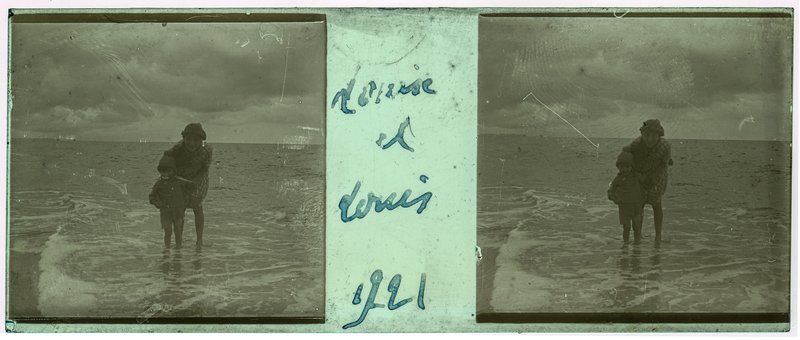 Louise
et
Louis
1921